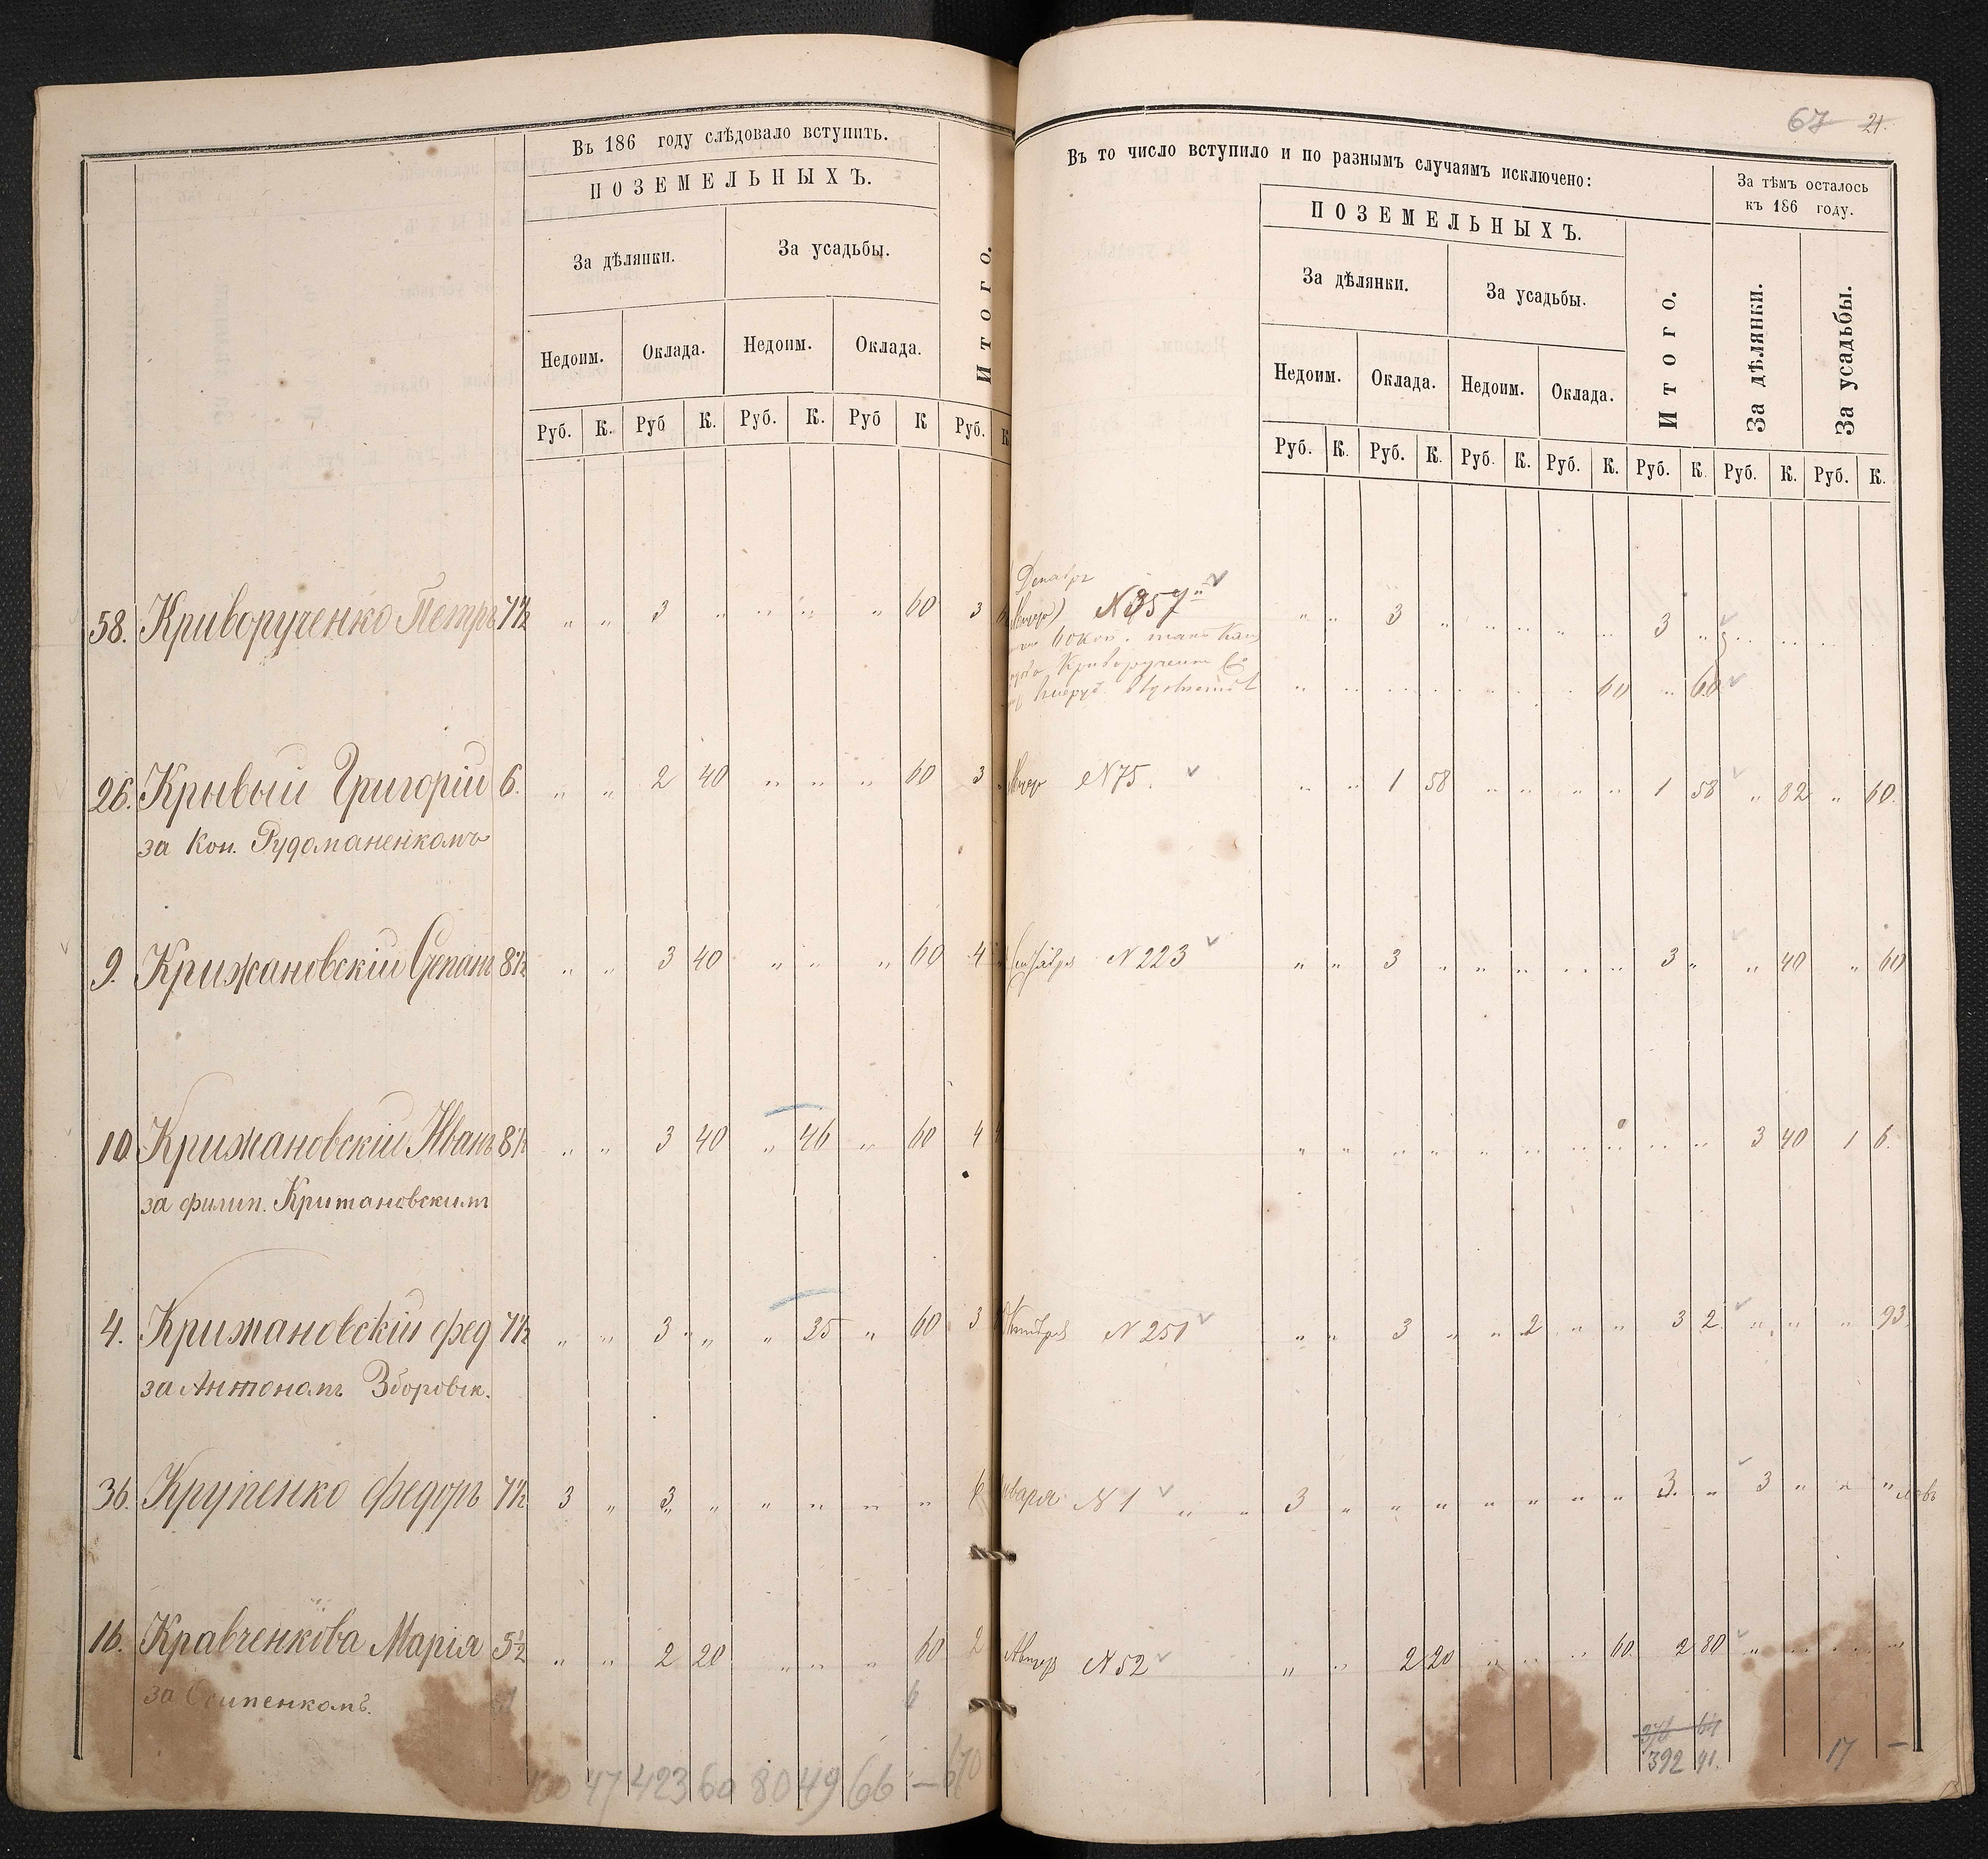 Въ 186 году слѣдовало вступить.
ПОЗЕМЕЛЬНЫХЪ.
За дѣлянки. За усадьбы. Итого.
Недоим. Оклада. Недоим. Оклада.
Руб. К. Руб К. Руб. К. Руб К Руб. К
58. Криворученко Петръ 7½ „ „ 3 „ „ „ „ 60 3
26. Крывый Григорій 6. „ „ 2 40 „ „ „ 60 3
за Кон. Рудоманенкомъ
9. Крижановскій Степанъ 8½ „ „ 3 40 „ „ „ 60 4
10. Крижановскій Иванъ 8½ „ „ 3 40 „ 46 „ 60 4
за филип. Крижановскимъ
4. Крижановскій фед 7½ „ „ 3 „ „ 35 „ 60 3
за Антономъ Зборовск.
36. Крупенко федоръ 7½ 3 „ 3 „ „ „ „ „ 6
16. Кравченкова Марія 5½ „ „ 2 20 „ „ „ 60 2
за Осипенкомъ.
47 423 60 80 49 66 —
67 21.
Въ то число вступило и по разнымъ случаямъ исключено:
За тѣмъ осталось
къ 186 году.
ПОЗЕМЕЛЬНЫХЪ.
За дѣлянки. За усадьбы. Итого. За дѣлянки. За усадьбы.
Недоим. Оклада. Недоим. Оклада.
Руб. К. Руб. К. Руб. К. Руб. К. Руб. К. Руб. К. Руб. К.
Декабрь
N 357 „ „ 3 „ „ „ „ „ 3 „ „ „ „
60 коп. такъ какъ
Криворученко
„ „ „ „ „ „ „ 60 „ 60
N 75. „ „ 1 58 „ „ „ „ 1 58 „ 82 „ 60.
Сентября N 223 „ „ 3 „ „ „ „ „ 3 „ „ 40 „ 60
„ „ „ „ „ „ „ „ „ „ 3 40 1 6.
Октября N 251 „ „ 3 „ „ 2 „ „ 3 2 „ „ „ 93.
нваря N 1 „ „ 3 „ „ „ „ „ „ „ 3. „ 3 „ „ „
N 52 „ „ 2 20 „ „ „ 60. 2 80 „ „ „ „
376 64
392 41. 17 —